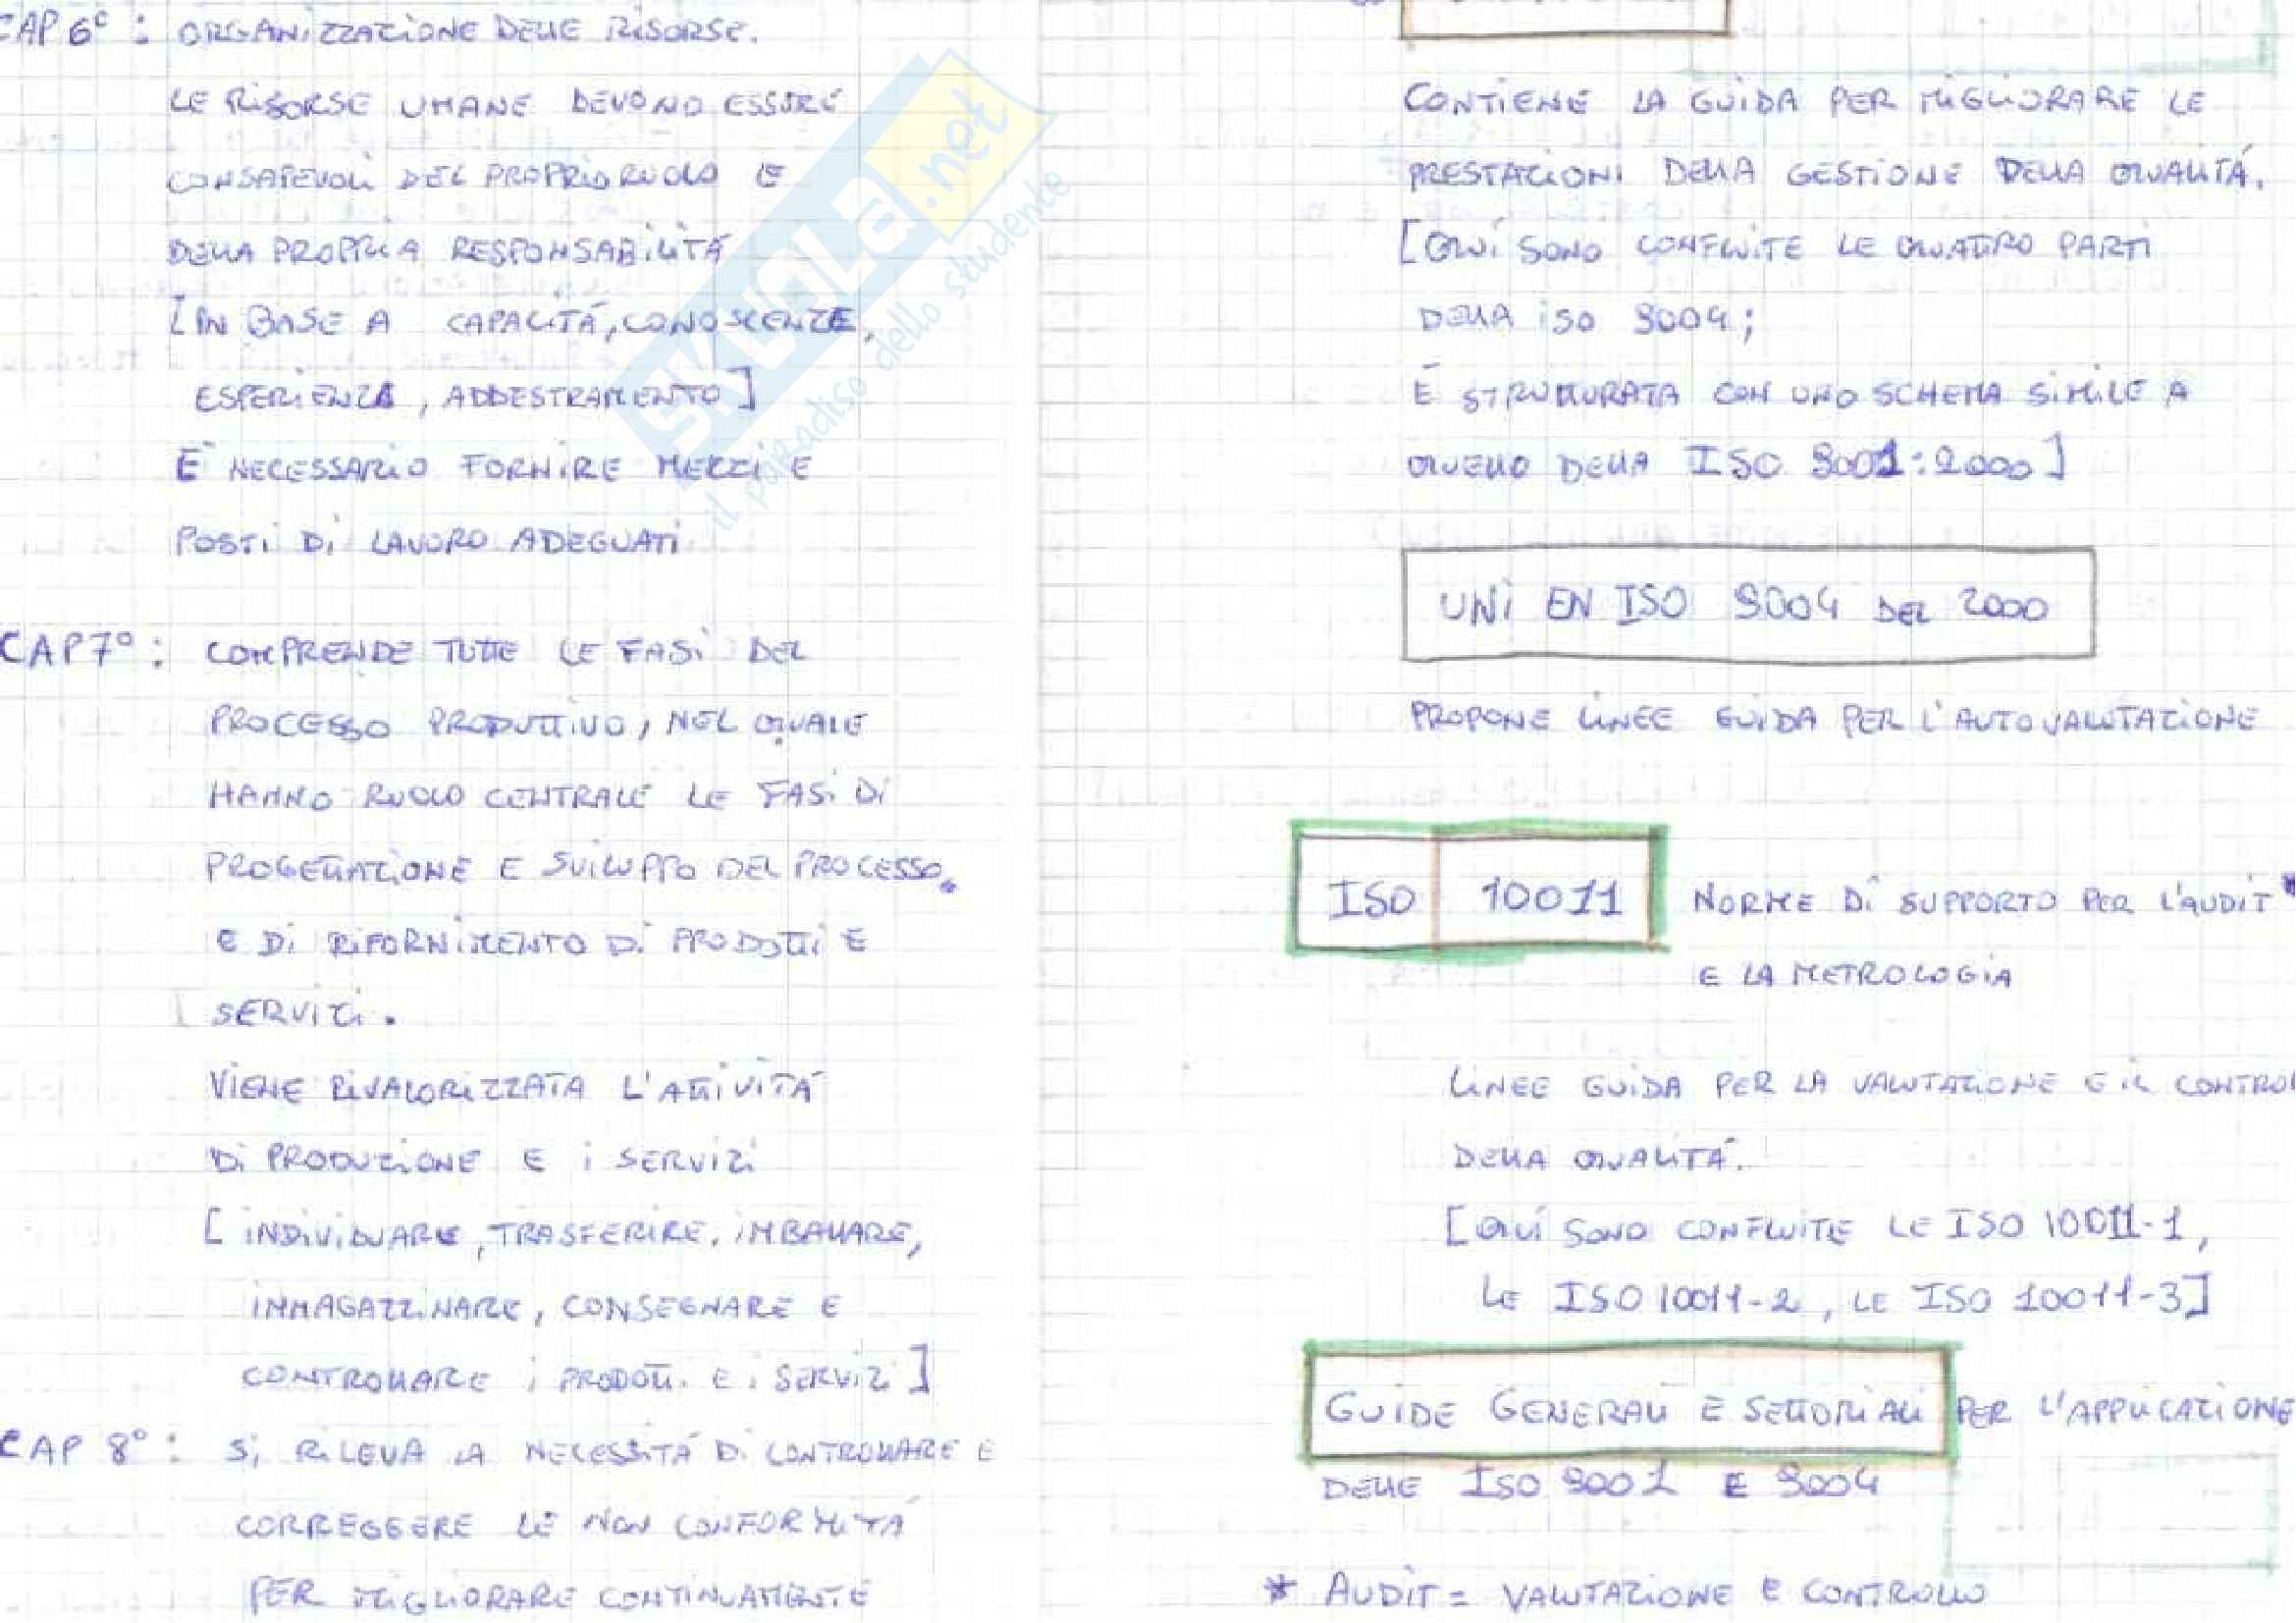 CAP 6° : ORGANIZZAZIONE DELLE RISORSE.
LE RISORSE UMANE DEVONO ESSERE
CONSAPEVOLI DEL PROPRIO RUOLO E
DELLA PROPRIA RESPONSABILITÀ
[IN BASE A CAPACITÀ, CONOSCENZE,
ESPERIENZA, ADDESTRAMENTO]
È NECESSARIO FORNIRE MEZZI E
POSTI DI LAVORO ADEGUATI
CAP 7° : COMPRENDE TUTTE LE FASI DEL
PROCESSO PRODUTTIVO, NEL QUALE
HANNO RUOLO CENTRALE LE FASI DI
PROGETTAZIONE E SVILUPPO DEL PROCESSO
E DI RIFORNIMENTO DI PRODOTTI E
SERVIZI.
VIENE RIVALORIZZATA L'ATTIVITÀ
DI PRODUZIONE E I SERVIZI
[INDIVIDUARE, TRASFERIRE, IMBALLARE,
IMMAGAZZINARE, CONSEGNARE E
CONTROLLARE I PRODOTTI E I SERVIZI]
CAP 8° : SI RILEVA LA NECESSITÀ DI CONTROLLARE E
CORREGGERE LE NON CONFORMITÀ
PER MIGLIORARE CONTINUAMENTE
CONTIENE LA GUIDA PER MIGLIORARE LE
PRESTAZIONI DELLA GESTIONE DELLA QUALITÀ.
[QUI SONO CONFLUITE LE QUATTRO PARTI
DELLA ISO 9004;
È STRUTTURATA CON UNO SCHEMA SIMILE A
QUELLO DELLA ISO 9001:2000]
UNI EN ISO 9004 DEL 2000
PROPONE LINEE GUIDA PER L'AUTOVALUTAZIONE
ISO 10011 NORME DI SUPPORTO PER L'AUDIT *
E LA METROLOGIA
LINEE GUIDA PER LA VALUTAZIONE E IL CONTROL
DELLA QUALITÀ.
[QUI SONO CONFLUITE LE ISO 10011-1,
LE ISO 10011-2, LE ISO 10011-3]
GUIDE GENERALI E SETTORIALI PER L'APPLICAZIONE
DELLE ISO 9001 E 9004
* AUDIT = VALUTAZIONE E CONTROLLO
SKUOLA.net
il paradiso dello studente